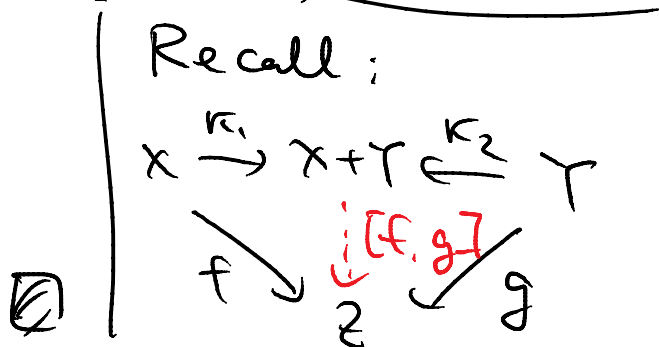 Recall:
X κ₁ X+Y κ₂ Y
f [f, g] g
Z